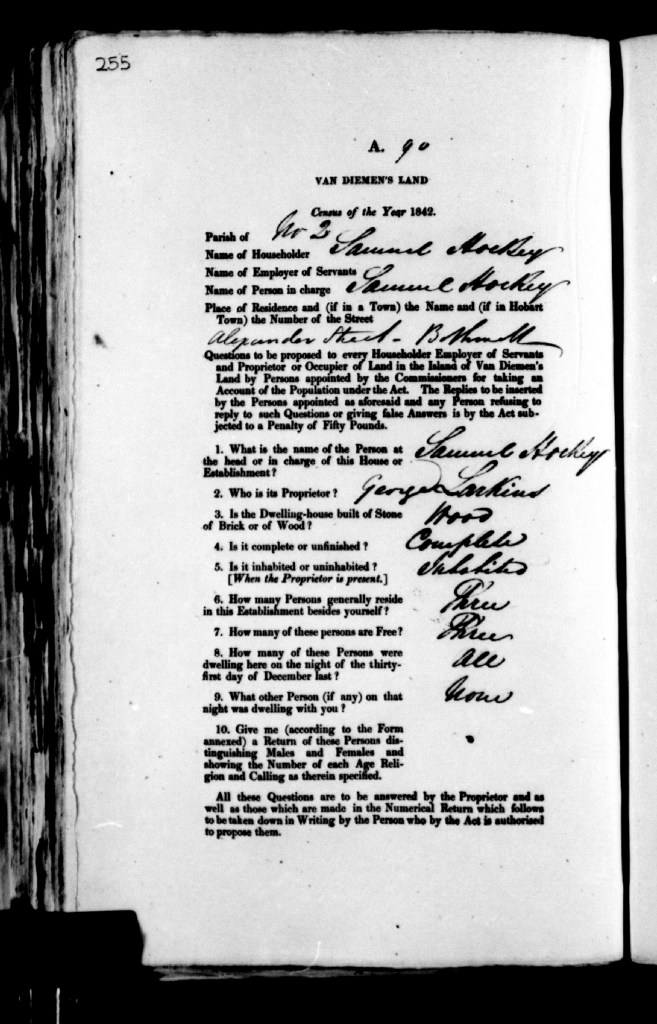 255
A. 90
VAN DIEMEN'S LAND
Census of the Year 1842.
Parish of No 2
Name of Householder Samuel Hockey
Name of Employer of Servants
Name of Person in charge Samuel Hockey
Place of Residence and (if in a Town) the Name and (if in Hobart
Town) the Number of the Street
Alexander Street - Bothwell
Questions to be proposed to every Householder Employer of Servants
and Proprietor or Occupier of Land in the Island of Van Diemen's
Land by Persons appointed by the Commissioners for taking an
Account of the Population under the Act. The Replies to be inserted
by the Persons appointed as aforesaid and any Person refusing to
reply to such Questions or giving false Answers is by the Act sub-
jected to a Penalty of Fifty Pounds.
1. What is the name of the Person at Samuel Hockey
the head or in charge of this House or
Establishment?
2. Who is its Proprietor? George Larkins
3. Is the Dwelling-house built of Stone Wood
of Brick or of Wood?
4. Is it complete or unfinished? Complete
5. Is it inhabited or uninhabited? Inhabited
[When the Proprietor is present.]
6. How many Persons generally reside Three
in this Establishment besides yourself?
7. How many of these persons are Free? Three
8. How many of these Persons were All
dwelling here on the night of the thirty-
first day of December last?
9. What other Person (if any) on that None
night was dwelling with you?
10. Give me (according to the Form
annexed) a Return of these Persons dis-
tinguishing Males and Females and
showing the Number of each Age Reli-
gion and Calling as therein specified.
All these Questions are to be answered by the Proprietor and as
well as those which are made in the Numerical Return which follows
to be taken down in Writing by the Person who by the Act is authorised
to propose them.